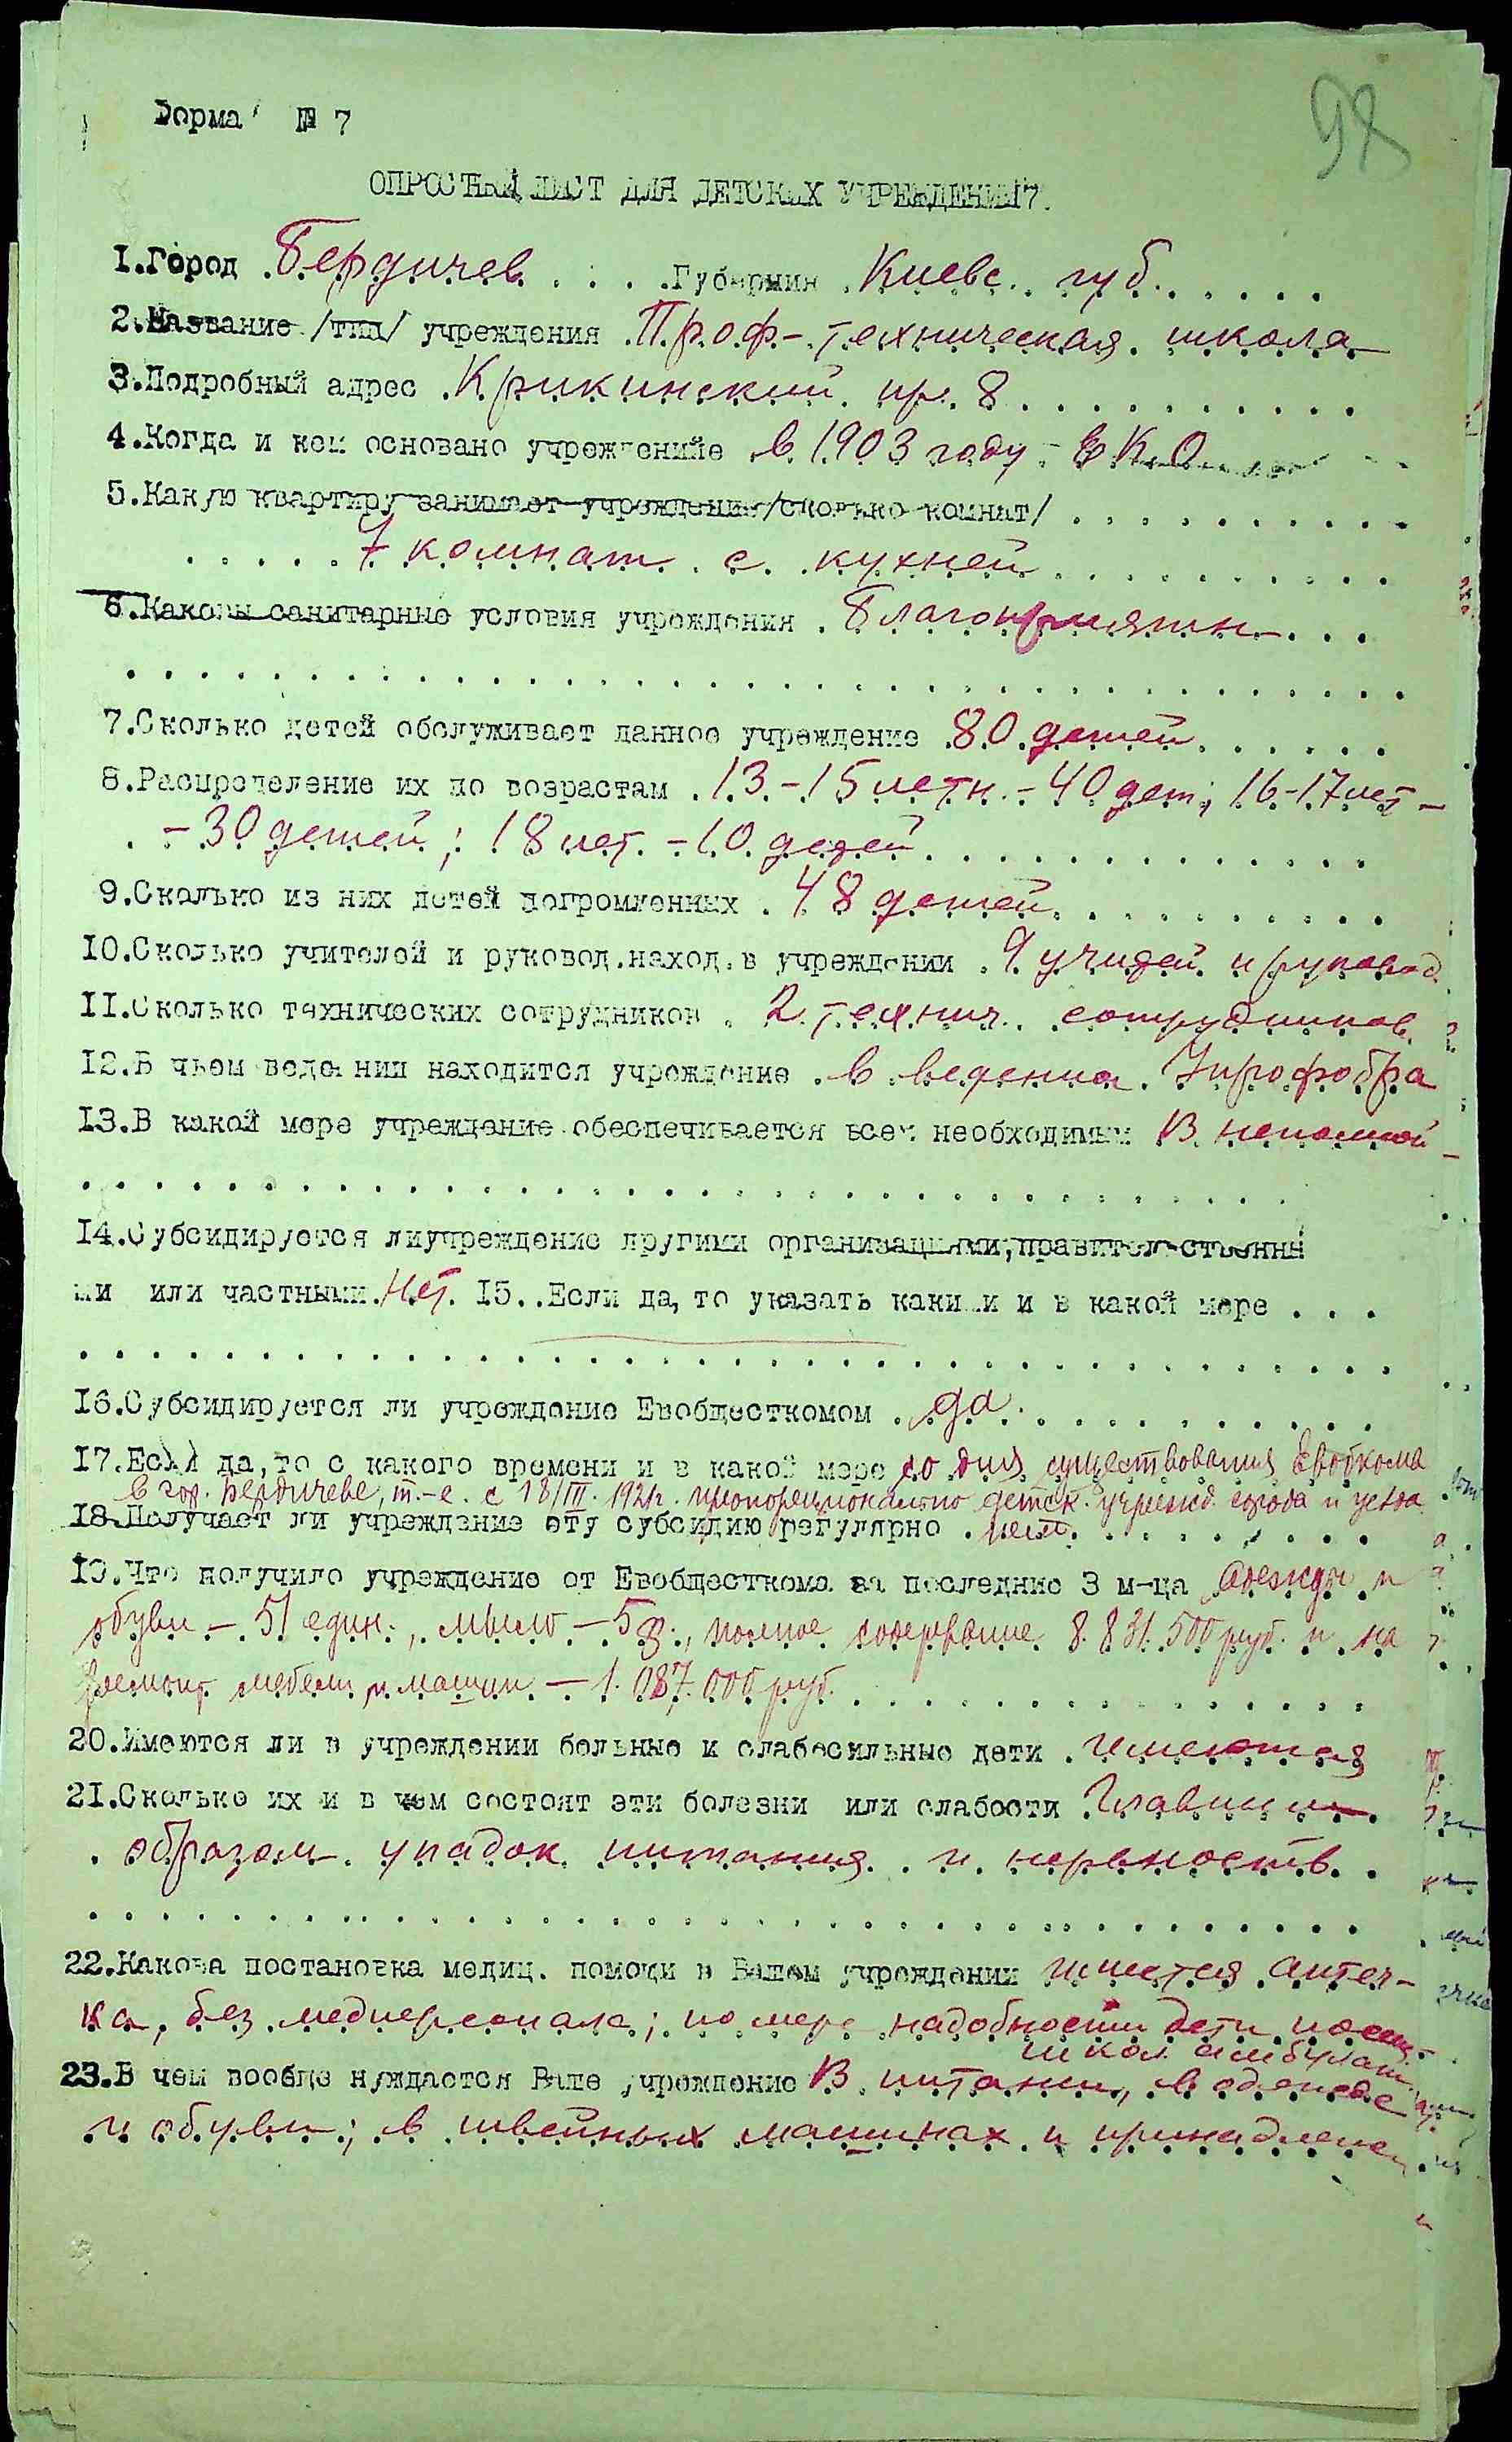 98
Форма № 7
ОПРОСНЫЙ ЛИСТ ДЛЯ ДЕТСКИХ УЧРЕЖДЕНИЙ.
1.Город Бердичев Губерния Киевс. губ.
2.Название /тип/ учреждения Проф-техническая школа
3.Подробный адрес Крикинский пр. 8
4.Когда и кем основано учреждение в 1903 году
5.Какую квартиру занимает учреждение/сколько комнат/
7 комнат с кухней
6.Каковы санитарные условия учреждения Благоприятн
7.Сколько детей обслуживает данное учреждение 80 детей
8.Распределение их по возрастам 13-15 летн. - 40 дет; 16-17 лет -
- 30 детей; 18 лет. - 10 детей
9.Сколько из них детей погромленных 48 детей
10.Сколько учителей и руковод.наход.в учреждении 9 учител и руковод.
11.Сколько технических сотрудников 2 технич. сотрудников
12.В чьем ведении находится учреждение в ведении Упрофобра
13.В какой мере учреждение обеспечивается всем необходимым В неполной
14.Субсидируется лиучреждение другими организациями,правительственны
ми или частными. Нет. 15..Если да, то указать каким и и в какой мере
16.Субсидируется ли учреждение Евобщесткомом да
17.Если да,то с какого времени и в какой мере со дня существования Евобкома
в гор. Бердичеве, т.-е. с 18/III. 1921г. пропорционально детск. учрежд. города и уезда
18.Получает ли учреждение эту субсидию регулярно нет
19.Что получило учреждение от Евобщесткома за последние 3 м-ца одежды и
обуви - 51 един., мыло - 5 полное содержание 8.831.500 руб. и на
ремонт мебели и машин - 1.087.000 руб.
20.Имеются ли в учреждении больные и слабосильные дети имеются
21.Сколько их и в чем состоят эти болезни или слабости Главным
образом упадок питания и нервность
22.Какова постановка медиц. помощи в Вашем учреждении имеется аптеч-
ка, без медперсонала; по мере надобности дети посещ.
школ амбулат.
23.В чем вообще нуждается Ваше учреждение В питании, в одежде
и обуви; в швейных машинах и принадлежн